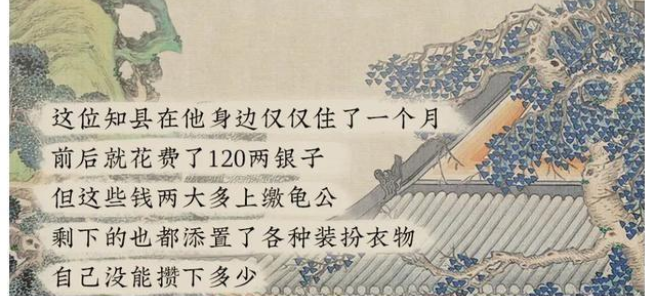 这位知县在他身边仅仅住了一个月
前后就花费了120两银子
但这些钱两大多上缴龟公
剩下的也都添置了各种装扮衣物
自己没能攒下多少